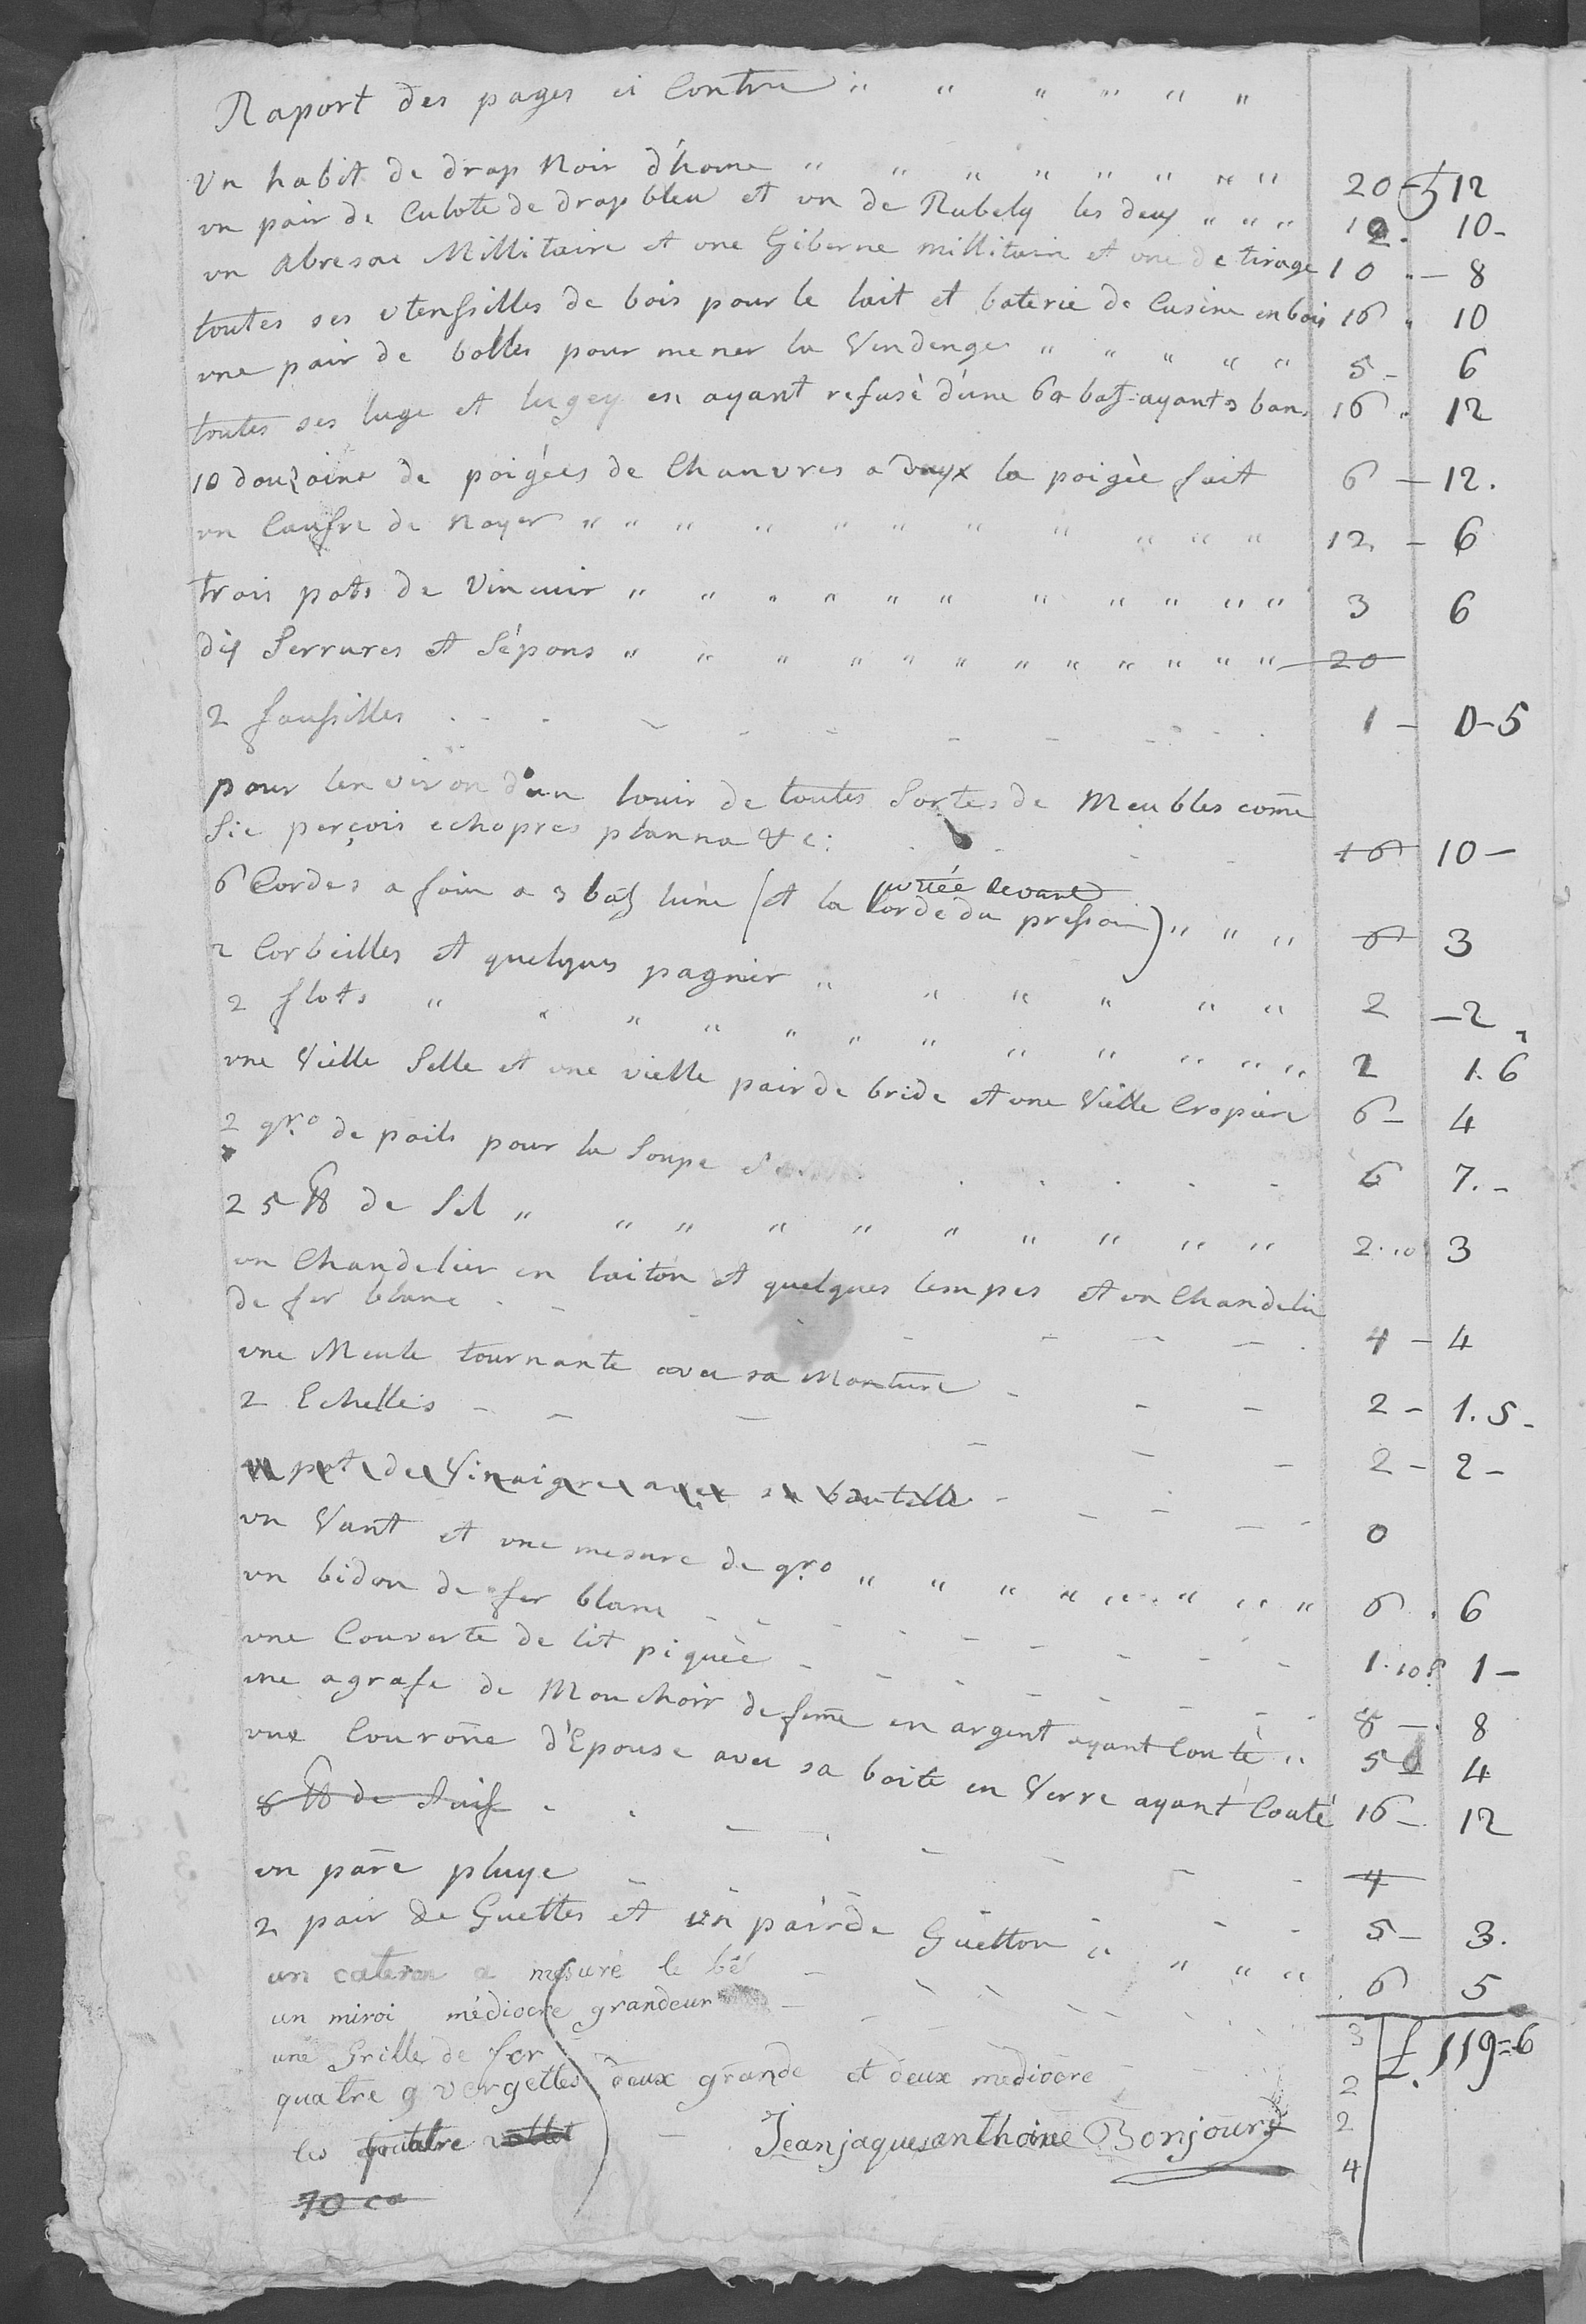 Raport des pages ci Contre " " " " " "
Un habit de drap Noir d'home " " " " " " " " 20 - 12
un pair de Culote de drap bleu et un de Rubely les deux " " " 12. 10-
un abresac Millitaire et une Giberne millitair et une de tirage 10 - 8
toutes ses utenssilles de bois pour le lait et baterie de Cusine en bois 16 . 10
une pair de bolles pour mener la Vendenge " " " " " 5 - 6
toutes ses luge et lugey en ayant refusé d'une 60 batz ayant 3 bans 16 . 12
10 douzaine de poigées de Chanvres a la poigèe fait 6 - 12.
un Caufre de Noyer " " " " " " " " " " " 12 - 6
trois pots de Vin cuir " " " " " " " " " " " 3 6
dix Serrures et Sépons " " " " " " " " " " " " 20
2 faussilles 1 - 0-5
pour lenviron d'un louir de toutes Sortes de Meubles come
Sie perçois echopres planna &c: 16 10-
6 Cordes a foin a 3 batz lune (et la Corde du pressoir) " " " 6 3
2 Corbeilles et quelques pagnier " " " " " " 2 -2
2 flots " " " " " " " " " " " " 2 1.6
une Vielle Selle et une vielle pair de bride et une Vielle Cropière 6- 4
2 qr.o de poils pour la Soupe 6 7.-
25 ℔ de Sel " " " " " " " " " " 2.10 3
un Chandelier en laiton et quelques lempes et un Chandelier
de fer blanc 4 - 4
une Meule tournante avec sa Monture - - - 2 - 1.5-
2 Echelles - - - - - - 2 - 2-
un pot de Vinaigre avec sa bouteille - - - - - 0
un Vant et une mesure de qr.o " " " " " " " " 6 . 6
un bidon de fer blanc - - - - - - - - 1.10 1-
une Couverte de lit piquèe - - - - - - - - 8 - 8
une agrafe de Mouchoir de feme en argent ayant Coutè " 5 4
une Courone d'Epouse avec sa boite en Verre ayant Couté 16 - 12
8 ℔ de Suif - - - - - - - - 4
un pare pluye - - - - - 5- 3.
2 pair de Guettes et un pair de Guetton " " " " 6 5
un cateron a mesuré le bè - - - - - - 3 £. 119=6
un miroi médiocre grandeur - - - - - 2
une Grille de for - - - - - 2
quatre vergettes deux grande et deux mediocre 4
les
Jean jaques anthoine Bonjour
70